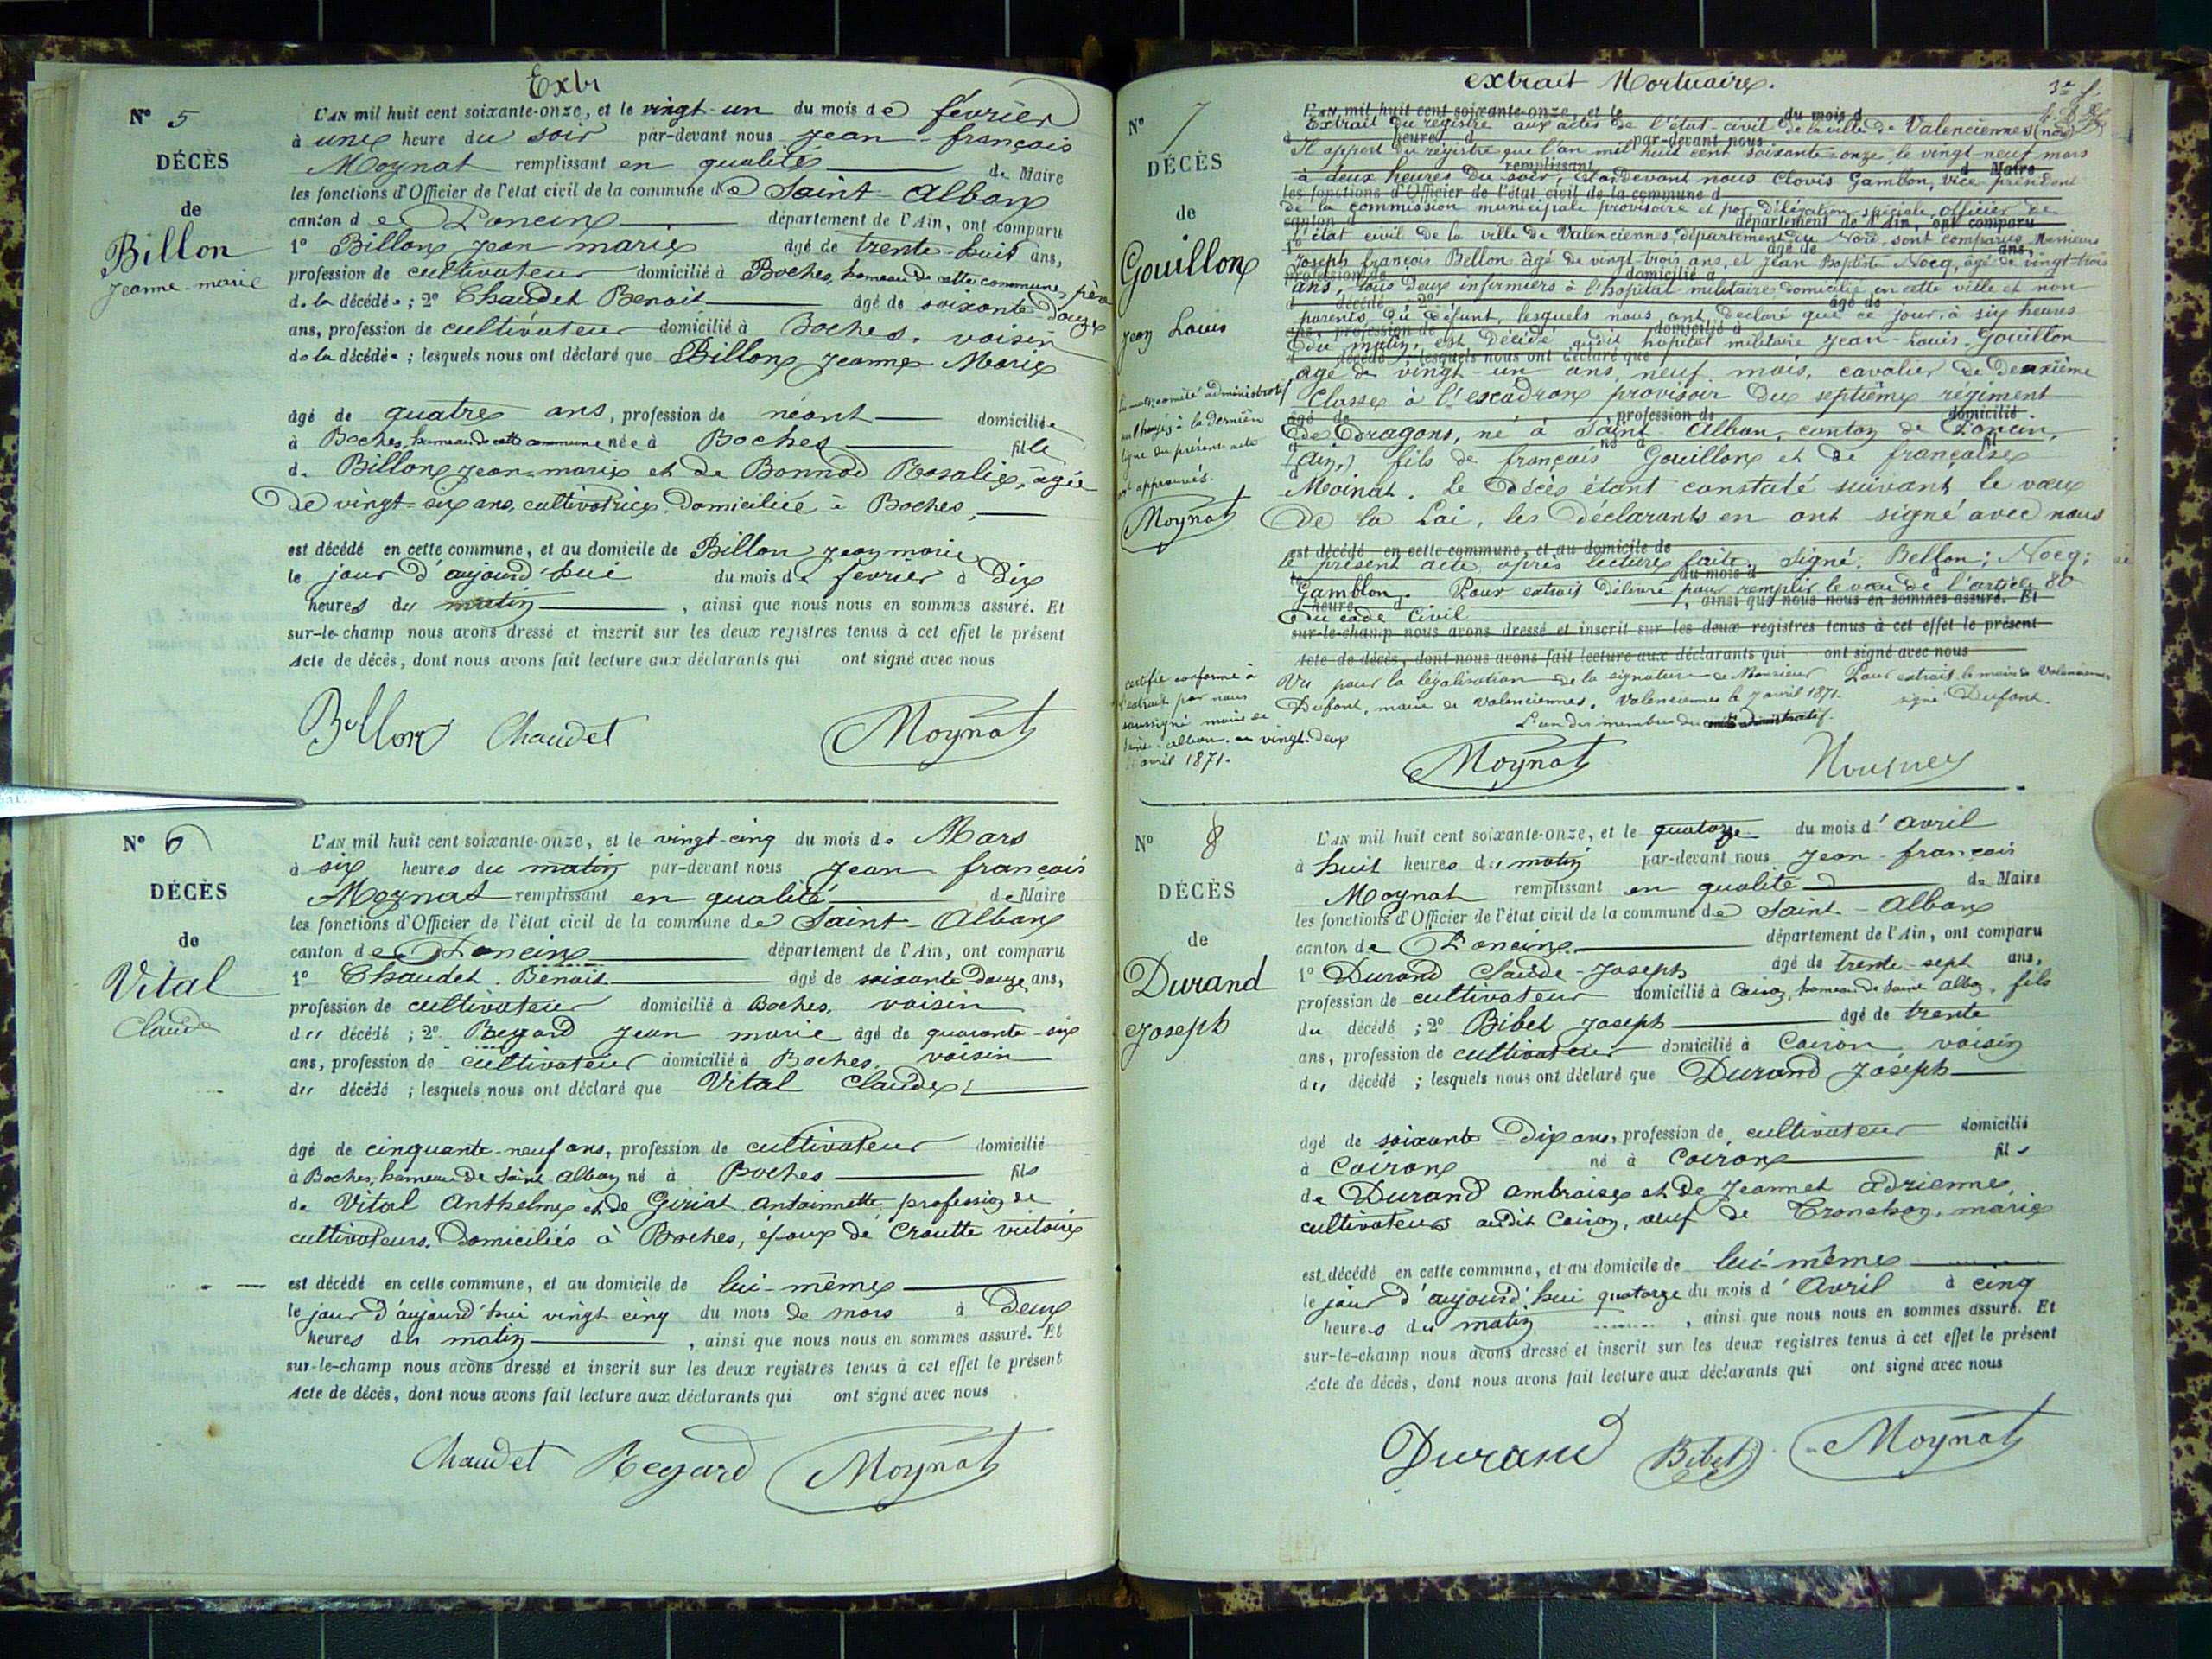 Extr
N° 5
DÉCÈS
de
Billon
Jeanne-marie
L'AN mil huit cent soixante-onze, et le vingt-un du mois de février
à une heure du soir par-devant nous Jean-françois
Moynat remplissant en qualité de Maire
les fonctions d'Officier de l'état civil de la commune de Saint-Alban
canton de Poncin département de l'Ain, ont comparu
1° Billon Jean marie âgé de trente-huit ans,
profession de cultivateur domicilié à Boches, hameau de cette commune, père
de la décédée ; 2° Chaudet Benoit âgé de soixante-douze
ans, profession de cultivateur domicilié à Boches, voisin
de la décédée ; lesquels nous ont déclaré que Billon Jeanne Marie
âgé de quatre ans, profession de néant domiciliée
à Boches, hameau de cette commune née à Boches fille
de Billon Jean-marie et de Bonnod Rosalie, âgée
de vingt-six ans, cultivatrice, domiciliée à Boches,
est décédé en cette commune, et au domicile de Billon Jean marie
le jour d'aujourd'hui du mois de fevrier à dix
heures du matin , ainsi que nous nous en sommes assuré. Et
sur-le-champ nous avons dressé et inscrit sur les deux registres tenus à cet effet le présent
Acte de décès, dont nous avons fait lecture aux déclarants qui ont signé avec nous
Billon Chaudet Moynat
N° 6
DÉCÈS
de
Vital
Claude
L'AN mil huit cent soixante-onze, et le vingt-cinq du mois de Mars
à six heures du matin par-devant nous Jean françois
Moynat remplissant en qualité de Maire
les fonctions d'Officier de l'état civil de la commune de Saint-Alban
canton de Poncin département de l'Ain, ont comparu
1° Chaudet Benoit âgé de soixante-douze ans,
profession de cultivateur domicilié à Boches, voisin
du décédé ; 2° Reygard Jean marie âgé de quarante-six
ans, profession de cultivateur domicilié à Boches, voisin
du décédé ; lesquels nous ont déclaré que Vital Claude
âgé de cinquante-neuf ans, profession de cultivateur domicilié
à Boches, hameau de Saint Alban né à Boches fils
de Vital Anthelme et de Giriat Antoinette profession de
cultivateurs, domiciliés à Boches, époux de Croutte victoire
est décédé en cette commune, et au domicile de lui-même
le jour d'aujourd'hui vingt cinq du mois de mars à deux
heures du matin , ainsi que nous nous en sommes assuré. Et
sur-le-champ nous avons dressé et inscrit sur les deux registres tenus à cet effet le présent
Acte de décès, dont nous avons fait lecture aux déclarants qui ont signé avec nous
Chaudet Regard Moynat
extrait Mortuaire.
N° 7
DÉCÈS
de
Gouillon
Jean Louis
Extrait du registre aux actes de l'état-civil de la ville de Valenciennes (nord)
Il appert du registre que l'an mil huit cent soixante-onze, le vingt neuf mars
à deux heures du soir, par devant nous Clovis Gamblon, vice-président
de la commission municipale provisoire et par délégation spéciale officier de
l'état civil de la ville de Valenciennes, département du Nord, sont comparus Messieurs
Joseph françois Bellon âgé de vingt-trois ans, et Jean Baptiste Nocq, âgé de vingt-trois
ans, tous deux infirmiers à l'hopital militaire, domiciliés en cette ville et non
parents du défunt, lesquels nous ont declaré que ce jour, à six heures
du matin, est décédé audit hopital militaire Jean-Louis Gouillon
agé de vingt-un ans, neuf mois, cavalier de deuxième
Classe à l'escadron provisoir du septième régiment
de dragons, né à Saint Alban, canton de Poncin,
(ain,) fils de françois Gouillon et de françoise
Moinat. Le décès étant constaté suivant le vœux
de la Loi, les déclarants en ont signé avec nous
le présent acte, après lecture faite. Signé: Bellon; Nocq;
Gamblon. Pour extrait délivré pour remplir le vœu de l'article 80
du code Civil
Les mots: comité administratif
surchargés à la dernière
ligne du présent acte
ont approuvés.
Moynat
certifié conforme à
l'extrait par nous
soussigné maire de
saint-alban, ce vingt-deux
avril 1871.
Vu pour la légalisation de la signature de Monsieur Pour extrait, le maire de Valenciennes
Dufont, maire de Valenciennes. Valenciennes le 7 avril 1871. signé Dufont.
L'un des membres du comité administratif.
Moynat
N° 8
DÉCÈS
de
Durand
Joseph
L'AN mil huit cent soixante-onze, et le quatorze du mois d'avril
à huit heures du matin par-devant nous Jean-françois
Moynat remplissant en qualité de Maire
les fonctions d'Officier de l'état civil de la commune de Saint-Alban
canton de Poncin département de l'Ain, ont comparu
1° Durand Claude-Joseph âgé de trente-sept ans,
profession de cultivateur domicilié à Coiron, hameau de Saint Alban, fils
du décédé ; 2° Bibet Joseph âgé de trente
ans, profession de cultivateur domicilié à Coiron voisin
du décédé ; lesquels nous ont déclaré que Durand Joseph
âgé de soixante-dix ans, profession de cultivateur domicilié
à Coiron né à Coiron fils
de Durand ambroise et de Jeannet adrienne,
cultivateurs audit Coiron, veuf de Tronchon, marie
est décédé en cette commune, et au domicile de lui-même
le jour d'aujourd'hui quatorze du mois d'Avril à cinq
heures du matin , ainsi que nous nous en sommes assuré. Et
sur-le-champ nous avons dressé et inscrit sur les deux registres tenus à cet effet le présent
Acte de décès, dont nous avons fait lecture aux déclarants qui ont signé avec nous
Durand Bibet Moynat